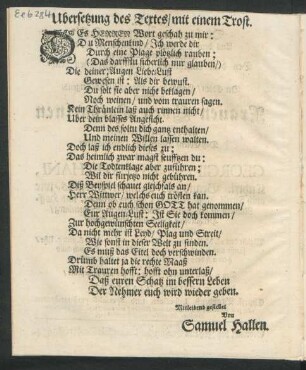 Ee 6284
Ubersetzung des Textes/ mit einem Trost.
DEs HERREN Wort geschah zu mir:
Du Menschenkind / Ich werde dir
Durch eine Plage plötzlich rauben:
(Das darffstu sicherlich mir glauben/)
Die deiner Augen Liebe Lust
Gewesen ist: Als dir bewust.
Du solt sie aber nicht beklagen/
Noch weinen/ und vom trauren sagen.
Kein Thränlein laß auch rinnen nicht
Uber dein blasses Angesicht.
Denn des soltu dich gantz enthalten/
Und meinen Willen lassen walten.
Doch laß ich endlich dieses zu:
Das heimlich zwar magst seufftzen du:
Die Todtenklage aber zuführen:
Wil dir hierzu nicht gebühren.
Diß Beyspiel schauet gleichfals an/
Herr Wittwer/ welchs euch trösten kan.
Denn ob euch schon GOTT hat genommen/
Eur Augen-Lust: Ist Sie doch kommen/
Zur hochgewünschten Seeligkeit/
Da nicht mehr ist Leyd/ Plag und Streit/
Wie sonst in dieser Welt zu finden.
Es muß das Eitel doch verschwinden.
Drümb haltet ja die rechte Maaß
Mit Trauren hofft: hofft ohn unterlaß/
Daß euren Schatz im bessern Leben
Der Nehmer euch wird wieder geben.
Mitleidend gestellet
Von
Samuel Hallen.